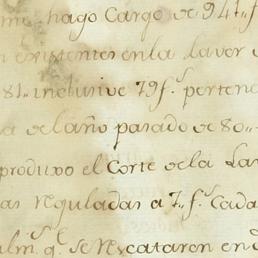 me hago Cargo de 941 f
existentes en la Laver
81 inclusive 79 f.s pertene
a del año pasado de 80
produxo el Corte de la Lan
as reguladas a 7 f.s Cada
alm.s q.e se rescataron en